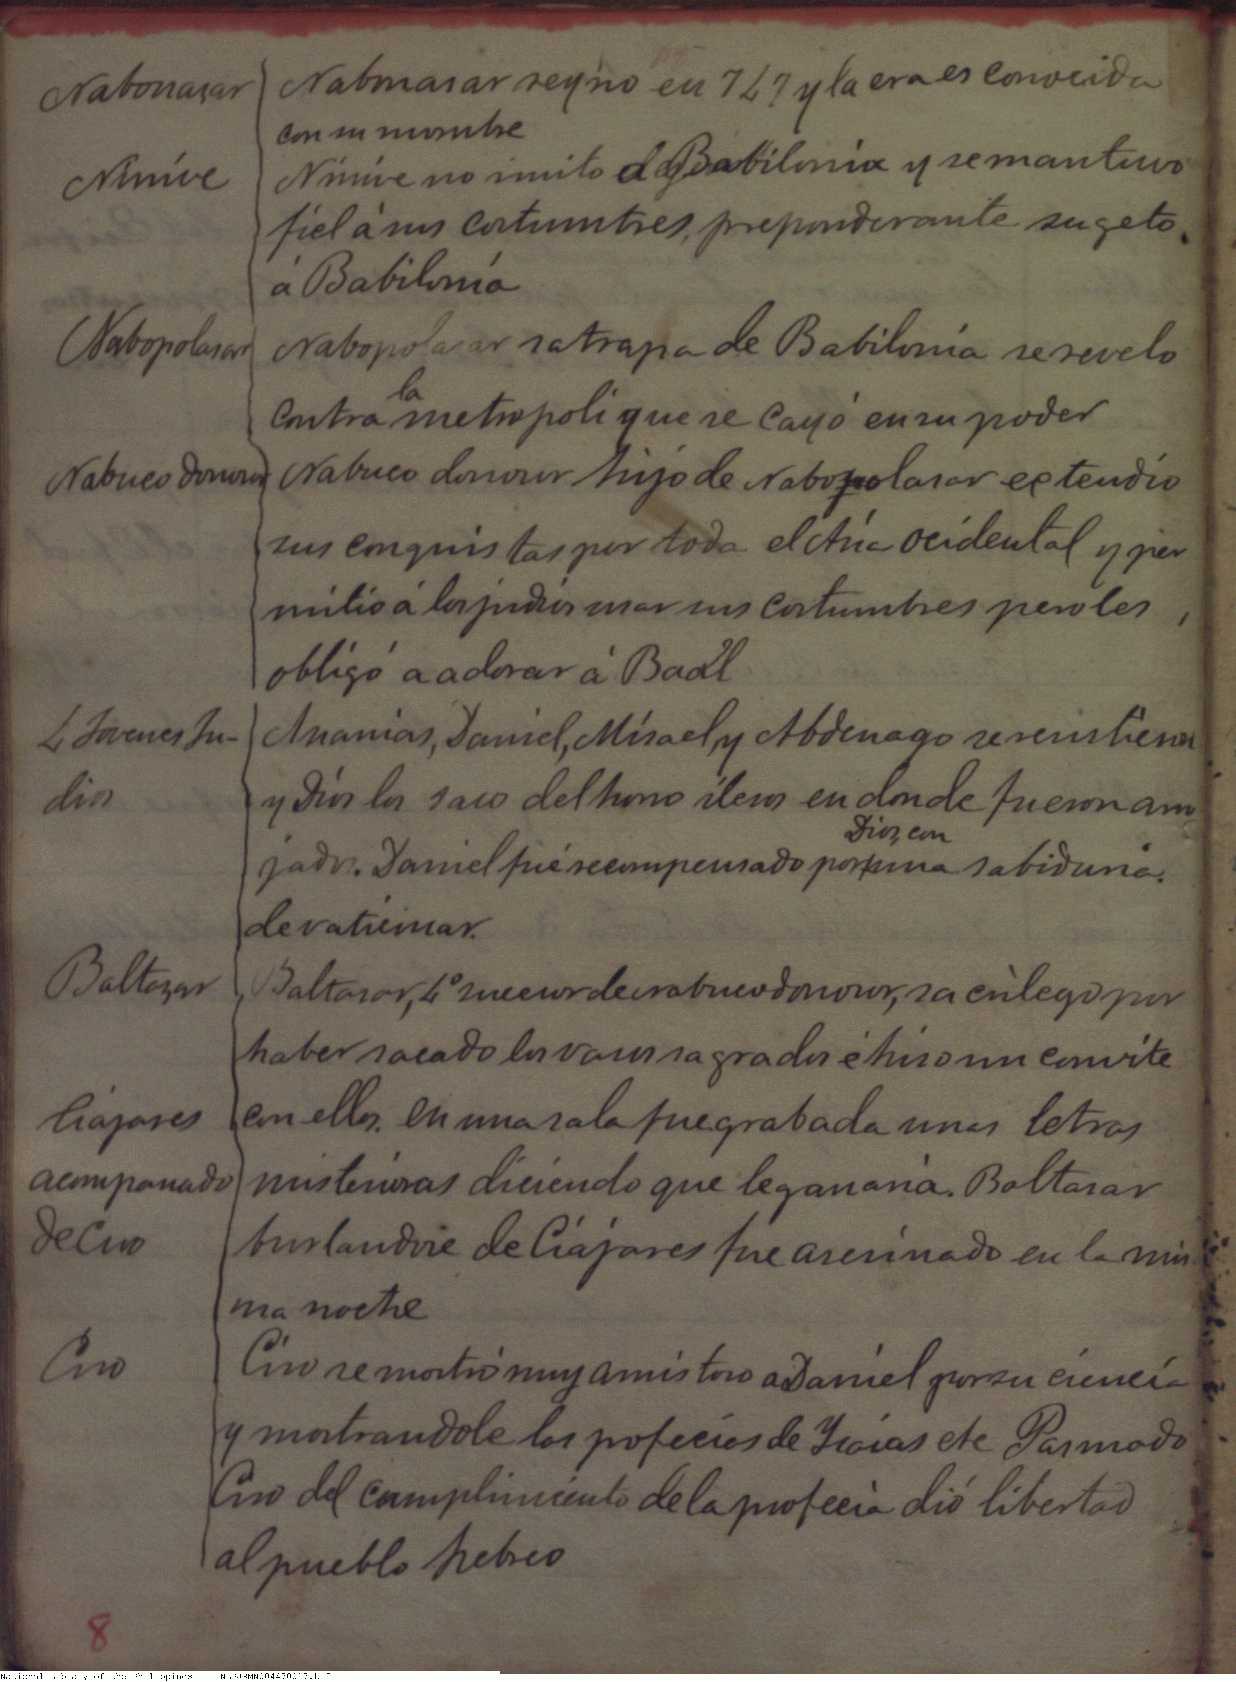 Nabonasar Nabonasar reyno en 747 y la era es conocida
con su nombre
Ninive Ninive no imito á Babilonia y se mantuvo
fiel á sus costumbres, preponderante sugeto
á Babilonia
Nabopolasar Nabopolasar satrapa de Babilonia se revelo
contra la metropoli que se cayó en su poder
Nabuco donosor Nabuco donosor hijo de Nabopolasar extendio
sus conquistas por toda el Asia ocidental y per
mitio á los judios usar sus costumbres pero les
obligó a adorar á Baal
4 Jovenes Ju- Ananias, Daniel, Misael, y Abdenago se resistieron
dios y Dios los saco del horno ilesos en donde fueron arro
jados. Daniel fué recompensado por Dios, con una sabiduria
de vaticinar.
Baltazar Baltasar, 4º sucesor de Nabucodonosor, sacrilego por
haber sacado los vasos sagrados é hiso un convite
Ciajares con ellos. En una sala fue grabada unas letras
acompanado misteriosas diciendo que le ganaria. Baltasar
de Ciro burlandose de Ciajares fue asesinado en la mis
ma noche
Ciro Ciro se mostró muy amistoso a Daniel por su ciencia
y mostrandole las profecias de Isaias etc Pasmado
Ciro del cumplimiento de la profecia dió libertad
al pueblo hebreo
8
National Library of the Philippines